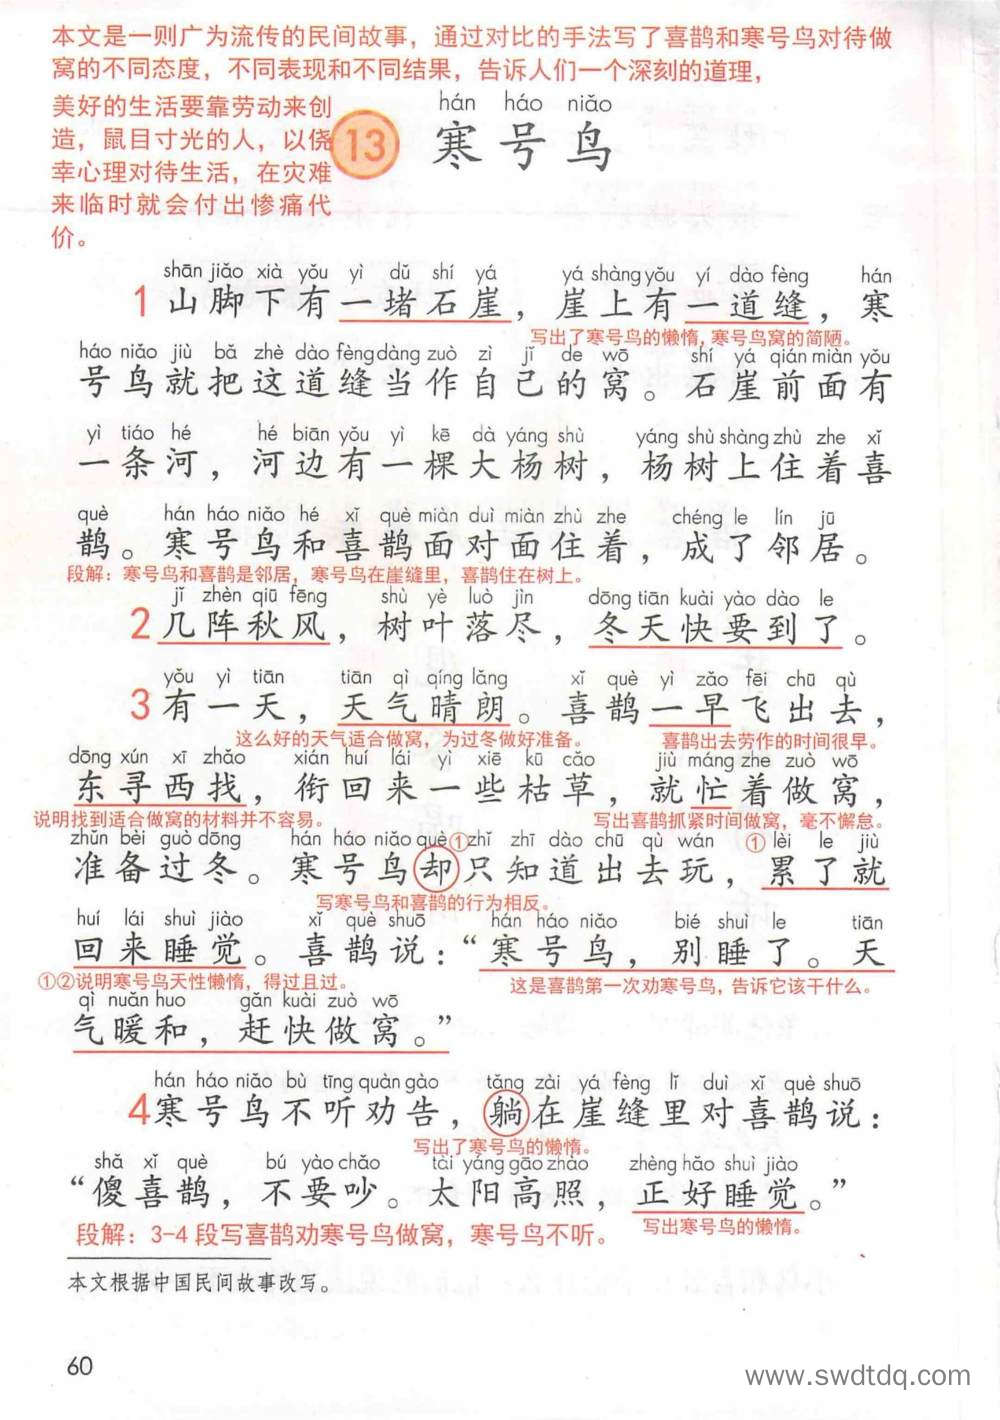 本文是一则广为流传的民间故事，通过对比的手法写了喜鹊和寒号鸟对待做
窝的不同态度，不同表现和不同结果，告诉人们一个深刻的道理，
美好的生活要靠劳动来创
造，鼠目寸光的人，以侥
幸心理对待生活，在灾难
来临时就会付出惨痛代
价。
hán háo niǎo
13 寒号鸟
shān jiǎo xià yǒu yì dǔ shí yá yá shàng yǒu yí dào fèng hán
1 山脚下有一堵石崖，崖上有一道缝，寒
写出了寒号鸟的懒惰，寒号鸟窝的简陋。
háo niǎo jiù bǎ zhè dào fèng dàng zuò zì jǐ de wō shí yá qián miàn yǒu
号鸟就把这道缝当作自己的窝。石崖前面有
yì tiáo hé hé biān yǒu yì kē dà yáng shù yáng shù shàng zhù zhe xǐ
一条河，河边有一棵大杨树，杨树上住着喜
què hán háo niǎo hé xǐ què miàn duì miàn zhù zhe chéng le lín jū
鹊。寒号鸟和喜鹊面对面住着，成了邻居。
段解：寒号鸟和喜鹊是邻居，寒号鸟在崖缝里，喜鹊住在树上。
jǐ zhèn qiū fēng shù yè luò jìn dōng tiān kuài yào dào le
2 几阵秋风，树叶落尽，冬天快要到了。
yǒu yì tiān tiān qì qíng lǎng xǐ què yì zǎo fēi chū qù
3 有一天，天气晴朗。喜鹊一早飞出去，
这么好的天气适合做窝，为过冬做好准备。 喜鹊出去劳作的时间很早。
dōng xún xī zhǎo xián huí lái yì xiē kū cǎo jiù máng zhe zuò wō
东寻西找，衔回来一些枯草，就忙着做窝，
说明找到适合做窝的材料并不容易。 写出喜鹊抓紧时间做窝，毫不懈怠。
zhǔn bèi guò dōng hán háo niǎo què ① zhǐ zhī dào chū qù wán ① lèi le jiù
准备过冬。寒号鸟却只知道出去玩，累了就
写寒号鸟和喜鹊的行为相反。
huí lái shuì jiào xǐ què shuō hán háo niǎo bié shuì le tiān
回来睡觉。喜鹊说：“寒号鸟，别睡了。天
①②说明寒号鸟天性懒惰，得过且过。 这是喜鹊第一次劝寒号鸟，告诉它该干什么。
qì nuǎn huo gǎn kuài zuò wō
气暖和，赶快做窝。”
hán háo niǎo bù tīng quàn gào tǎng zài yá fèng lǐ duì xǐ què shuō
4 寒号鸟不听劝告，躺在崖缝里对喜鹊说：
写出了寒号鸟的懒惰。
shǎ xǐ què bú yào chǎo tài yáng gāo zhào zhèng hǎo shuì jiào
“傻喜鹊，不要吵。太阳高照，正好睡觉。”
段解：3-4段写喜鹊劝寒号鸟做窝，寒号鸟不听。 写出寒号鸟的懒惰。
本文根据中国民间故事改写。
60
www.swdtdq.com